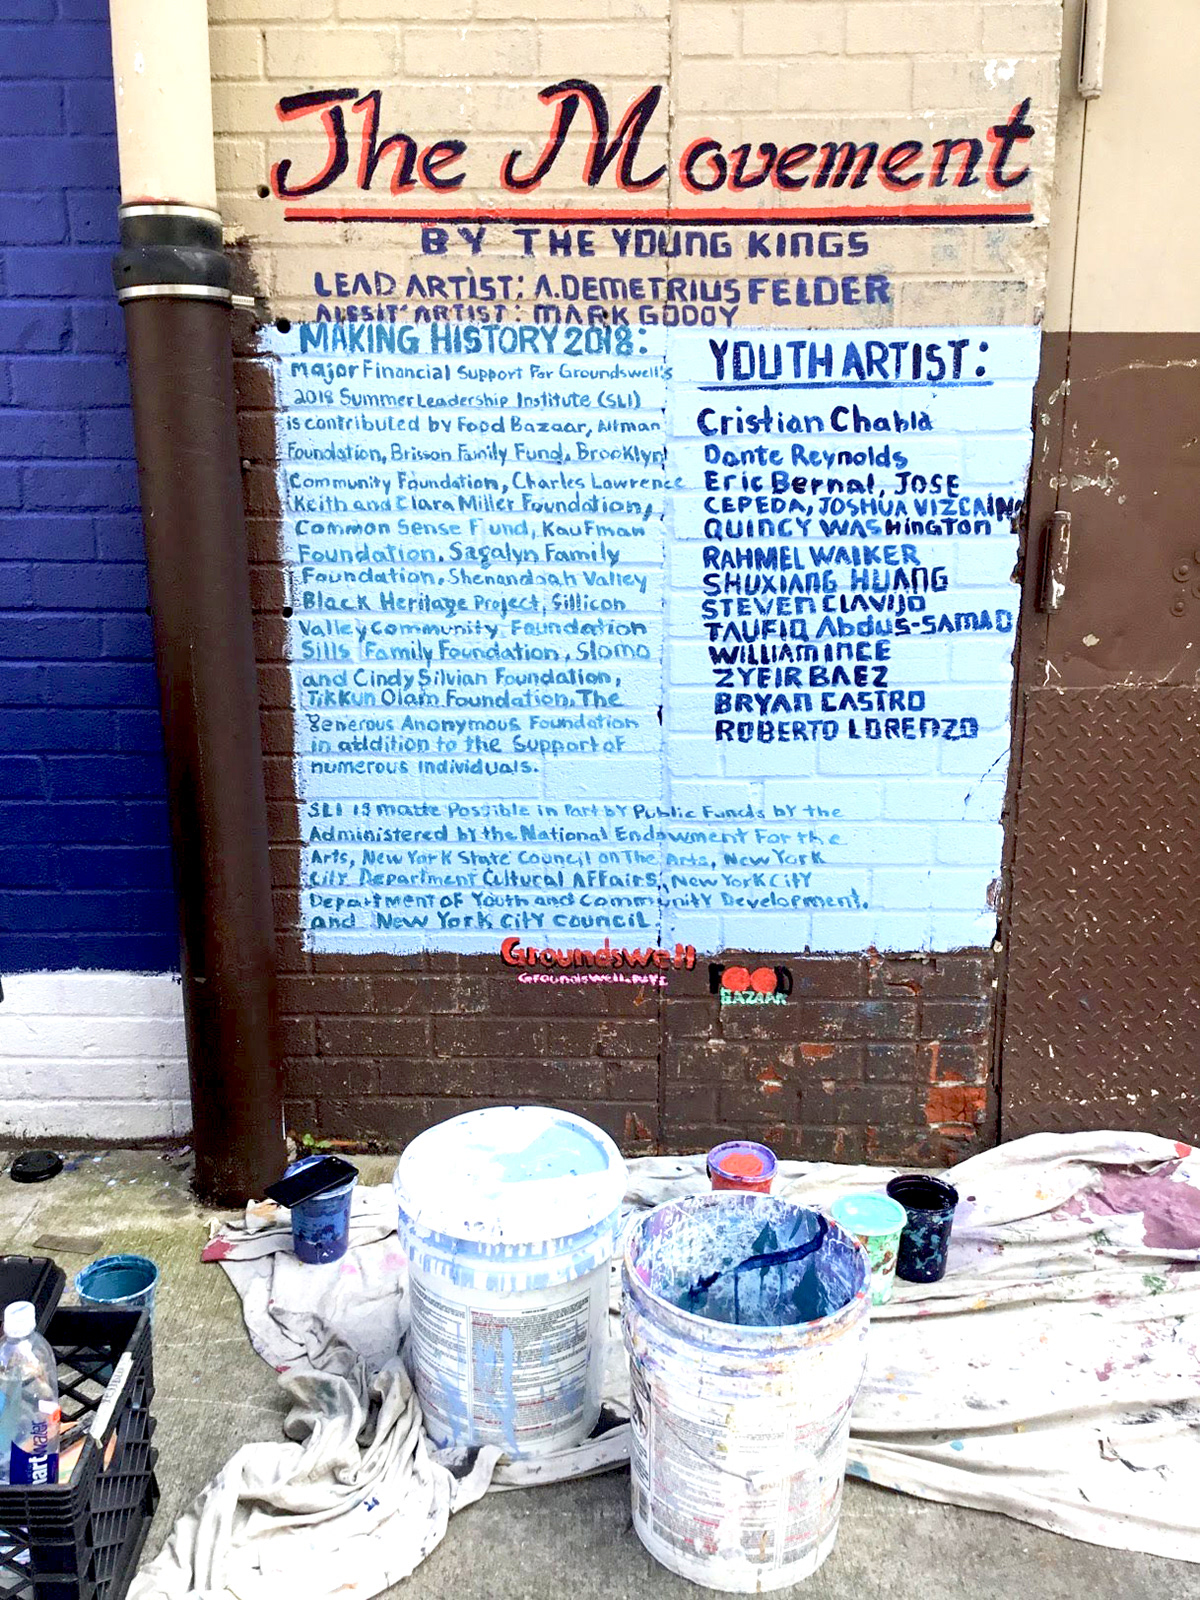 The Movement
BY THE YOUNG KINGS
LEAD ARTIST: A.DEMETRIUS FELDER
ASSIT ARTIST: MARK GODOY
MAKING HISTORY 2018:
Major Financial Support For Groundswell's
2018 Summer Leadership Institute (SLI)
is contributed by Food Bazaar, Altman
Foundation, Brisson Family Fund, Brooklyn
Community Foundation, Charles Lawrence
Keith and Clara Miller Foundation,
Common Sense Fund, Kaufman
Foundation, Sagalyn Family
Foundation, Shenandoah Valley
Black Heritage Project, Sillicon
Valley Community Foundation
Sills Family Foundation, Slomo
and Cindy Silvian Foundation,
Tikkun Olam Foundation, The
generous Anonymous Foundation
in addition to the Support of
numerous individuals.
SLI is made Possible in Part by Public Funds by the
Administered by the National Endowment For the
Arts, New York State Council on The Arts, New York
City Department Cultural Affairs, New York City
Department of Youth and Community Development.
and New York City Council.
YOUTH ARTIST:
Cristian Chabla
Dante Reynolds
Eric Bernal, JOSE
CEPEDA, JOSHUA VIZCAINO
QUINCY WASHington
RAHMEL WALKER
SHUXIANG HUANG
STEVEN CLAVIJO
TAUFIQ Abdus-SAMAD
WILLIAM INCE
ZYEIR BAEZ
BRYAN CASTRO
ROBERTO LORENZO
Groundswell
Groundswell.nyc
FOOD
BAZAAR
artwater